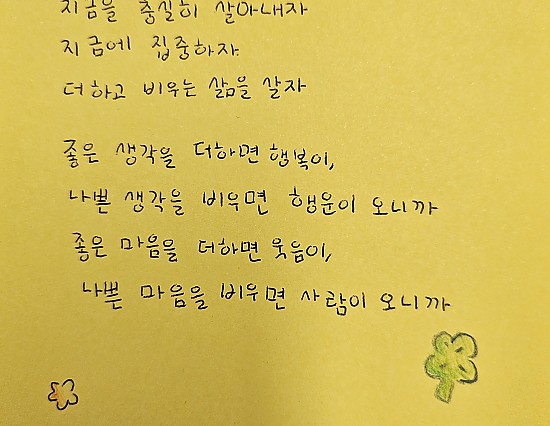 지금을 충실히 살아내자
지금에 집중하자
더하고 비우는 삶을 살자
좋은 생각을 더하면 행복이,
나쁜 생각을 비우면 행운이 오니까
좋은 마음을 더하면 웃음이,
나쁜 마음을 비우면 사람이 오니까